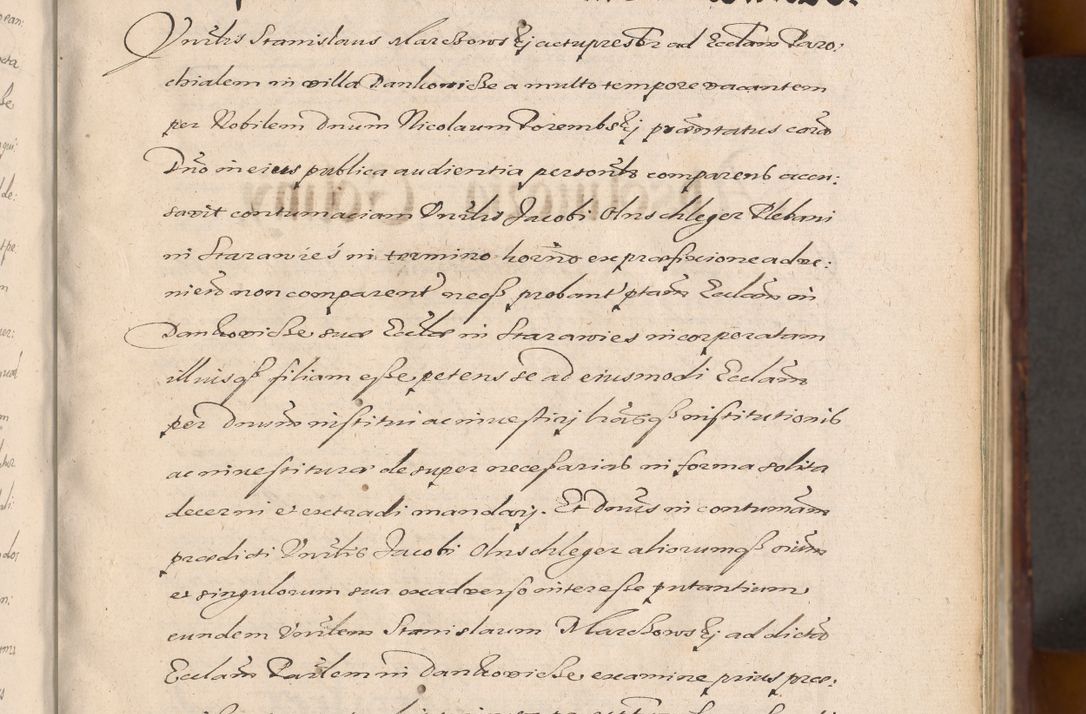 Vnrlis Stanislaus Marchowskj actu presbr ad Ecclam Paro:
chialem in villa Dankowicze a multo tempore vacantem
per Nobilem Dnum Nicolaum Porembskj pñtatus corã
Dño in eius publica audientia personlr comparens accu:
savit contumaciam Vnrlis Jacobi Olnschleger Plebani
in Starawieś in termino horño ex præfixione adve:
nien non comparent neqß probant ptam Ecclam in
Dankowicze suæ Ecclæ in Starawies incorporatam
illiusqß filiam esse, petens se ad eiusmodi Ecclam
per Dnum institui ac investirj lrasqß institutionis
ac investituræ de super necessarias in forma solita
decerni et extradi mandarj. Et Dnus in contumam
prædicti Vnrlis Jacobi Olnschleger aliorumqß oium
et singulorum sua ex adverso interesse putantium
eundem Vnrlem Stanislaum Marchowskj ad dictã
Ecclam Parlem in Dankowicze examine prius præ: